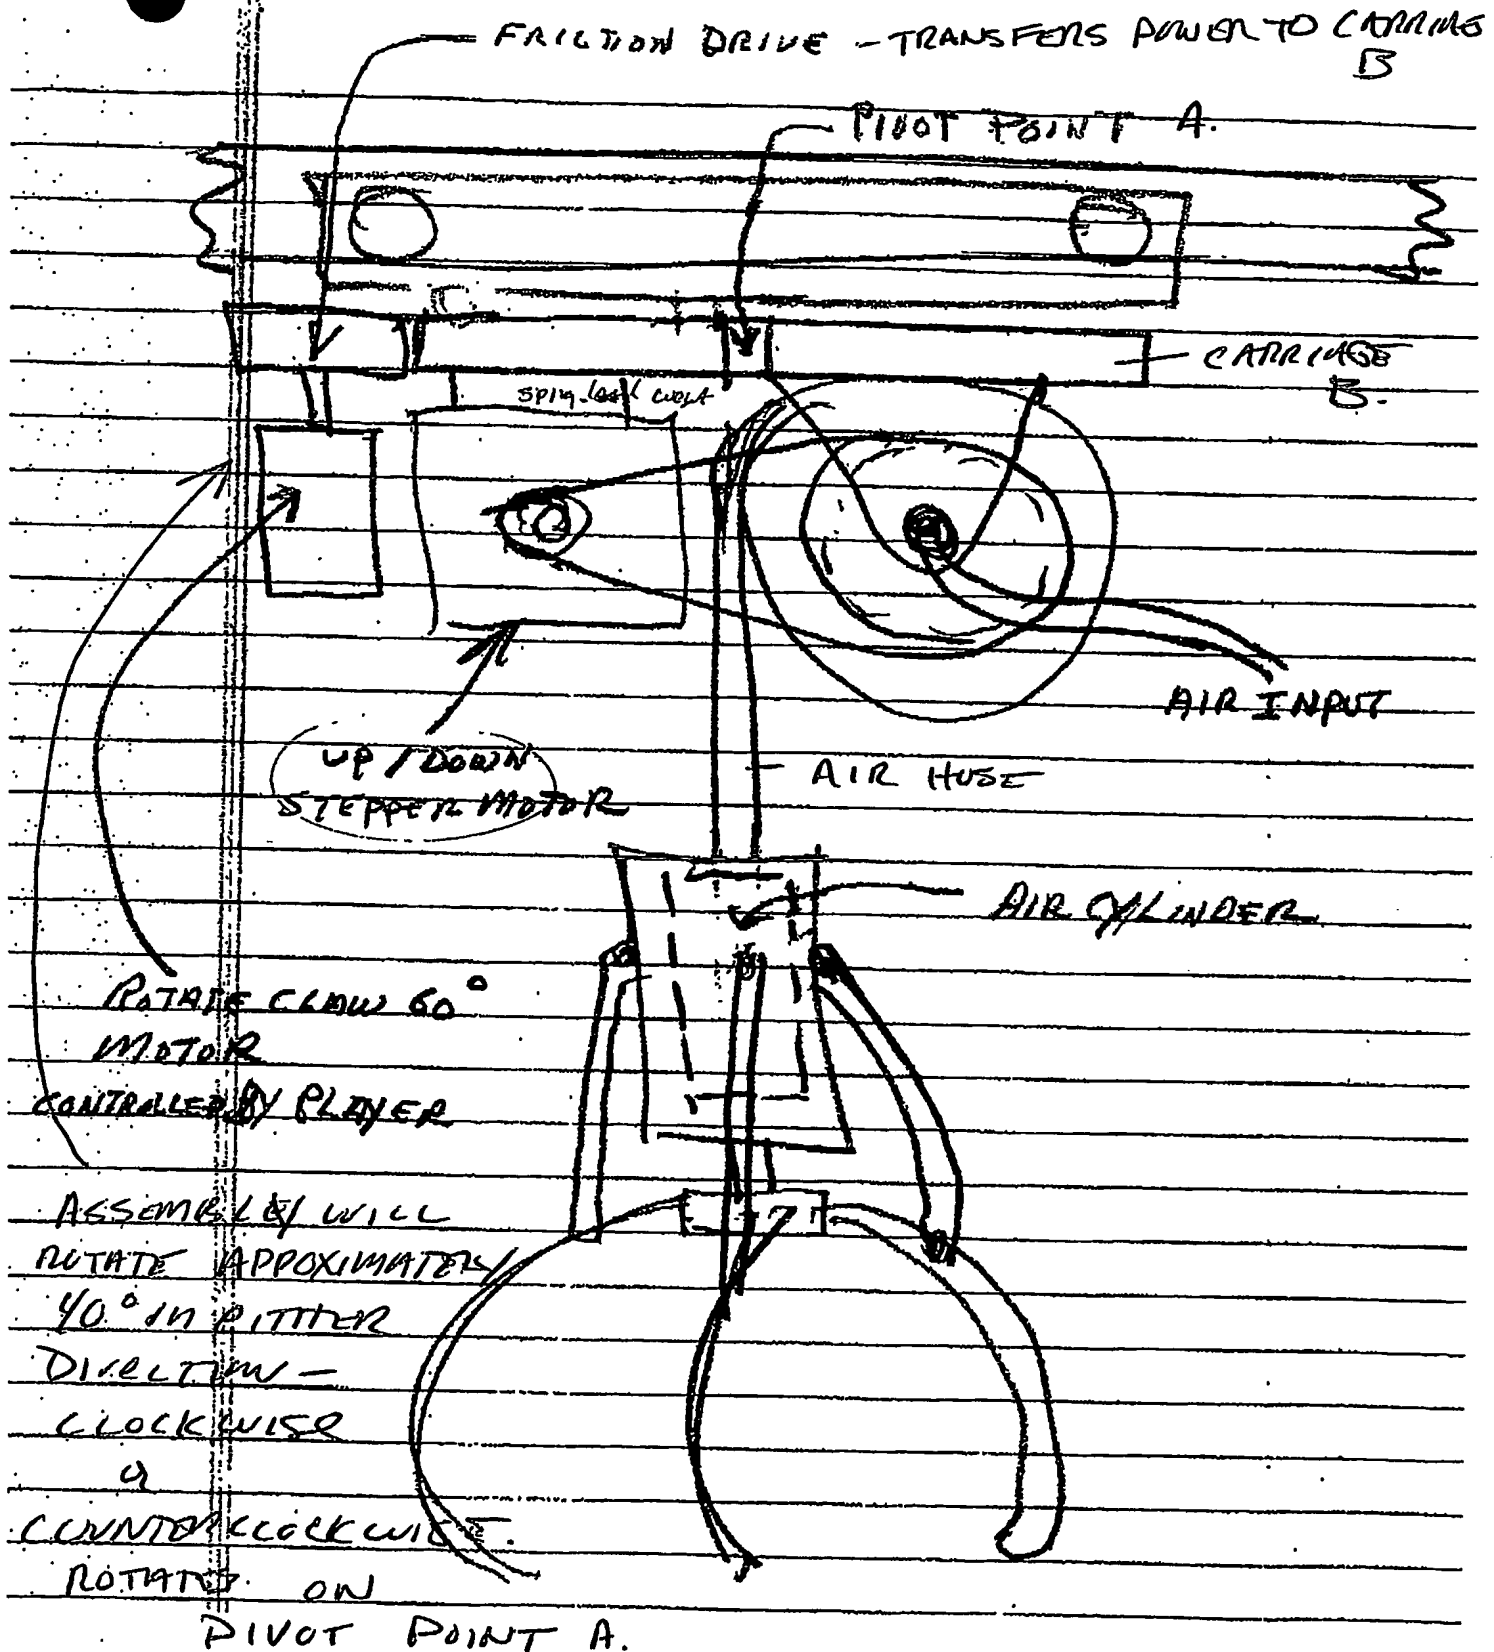 FRICTION DRIVE - TRANSFERS POWER TO CARRIAGE
B
PIVOT POINT A.
CARRIAGE
B.
AIR INPUT
UP / DOWN
STEPPER MOTOR
AIR HOSE
AIR CYLINDER
ROTATE CLAW 60°
MOTOR
CONTROLLED BY PLAYER
ASSEMBLEY WILL
ROTATE APPROXIMATELY
40° IN EITHER
DIRECTION -
CLOCKWISE
or
COUNTERCLOCKWISE.
ROTATES ON
PIVOT POINT A.